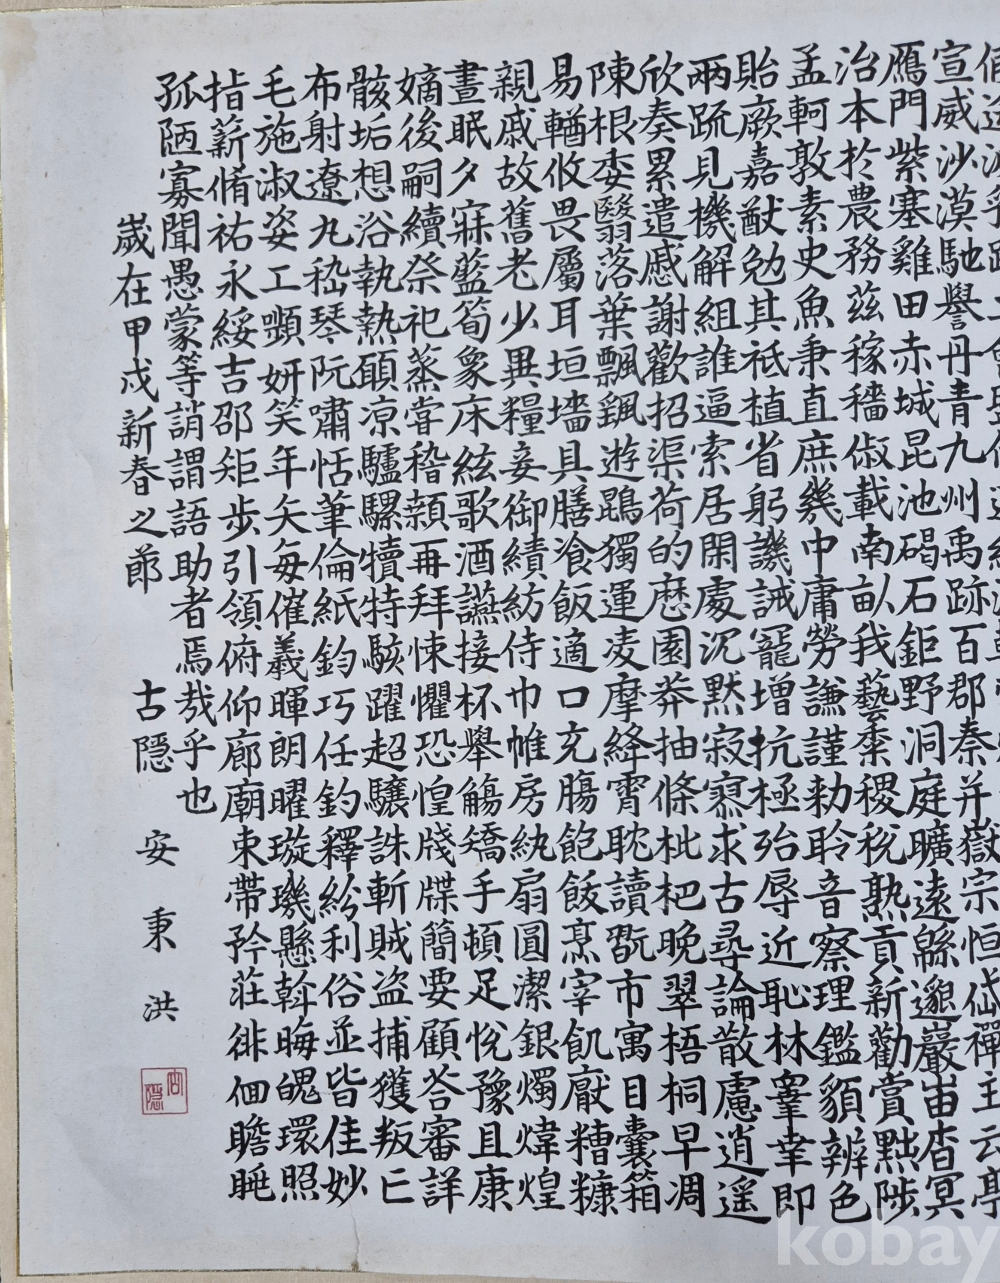 宣威沙漠馳譽丹青九州禹跡百郡秦并嶽宗恒岱禪主云亭
雁門紫塞雞田赤城昆池碣石鉅野洞庭曠遠緜邈巖岫杳冥
治本於農務茲稼穡俶載南畝我藝黍稷稅熟貢新勸賞黜陟
孟軻敦素史魚秉直庶幾中庸勞謙謹勅聆音察理鑑貌辨色
貽厥嘉猷勉其祗植省躬譏誡寵增抗極殆辱近恥林睾幸即
兩疏見機解組誰逼索居閑處沉默寂寥求古尋論散慮逍遙
欣奏累遣慼謝歡招渠荷的歷園莽抽條枇杷晚翠梧桐早凋
陳根委翳落葉飄颻遊鵾獨運凌摩絳霄耽讀翫市寓目囊箱
易輶攸畏屬耳垣墻具膳飡飯適口充腸飽飫烹宰飢厭糟糠
親戚故舊老少異糧妾御績紡侍巾帷房紈扇圓潔銀燭煒煌
晝眠夕寐藍筍象床絃歌酒讌接杯舉觴矯手頓足悅豫且康
嫡後嗣續祭祀蒸嘗稽顙再拜悚懼恐惶牋牒簡要顧答審詳
骸垢想浴執熱願凉驢騾犢特駭躍超驤誅斬賊盜捕獲叛亡
布射遼丸嵇琴阮嘯恬筆倫紙鈞巧任釣釋紛利俗並皆佳妙
毛施淑姿工顰妍笑年矢每催羲暉朗曜璇璣懸斡晦魄環照
指薪脩祐永綏吉邵矩步引領俯仰廊廟束帶矜莊徘徊瞻眺
孤陋寡聞愚蒙等誚謂語助者焉哉乎也
歲在甲戌新春之節 古隱 安秉洪
古隱
kobay